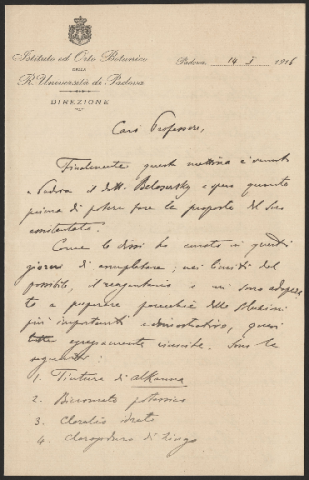 Istituto ed Orto Botanico
DELLA
R. Università di Padova
DIREZIONE
Padova, 14 I 1916
Caro Professore,
Finalmente questa mattina è venuto
a Padova il dott. Belosersky e spero quanto
prima di potere fare le proposte del suo
Come le dissi ho curato in questi
giorni di completare, nei limiti del
possibile, il reagentario e mi sono adopera
to a preparare parecchie delle soluzioni
più importanti e dimostrative, quasi
tutte egregiamente riuscite. Sono le
seguenti:
1. Tintura di alkanna
2. Bicromato potassico
3. Cloralio idrato
4. Cloroioduro di zinco